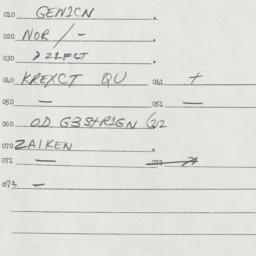 010 GENICN .
020 NOR / - .
030 > 21FCT .
040 KREXCT QU 041 +
050 — 051 —
060 OD G3STRIGN 612
070 ZAIKEN .
071 — 072
073 —